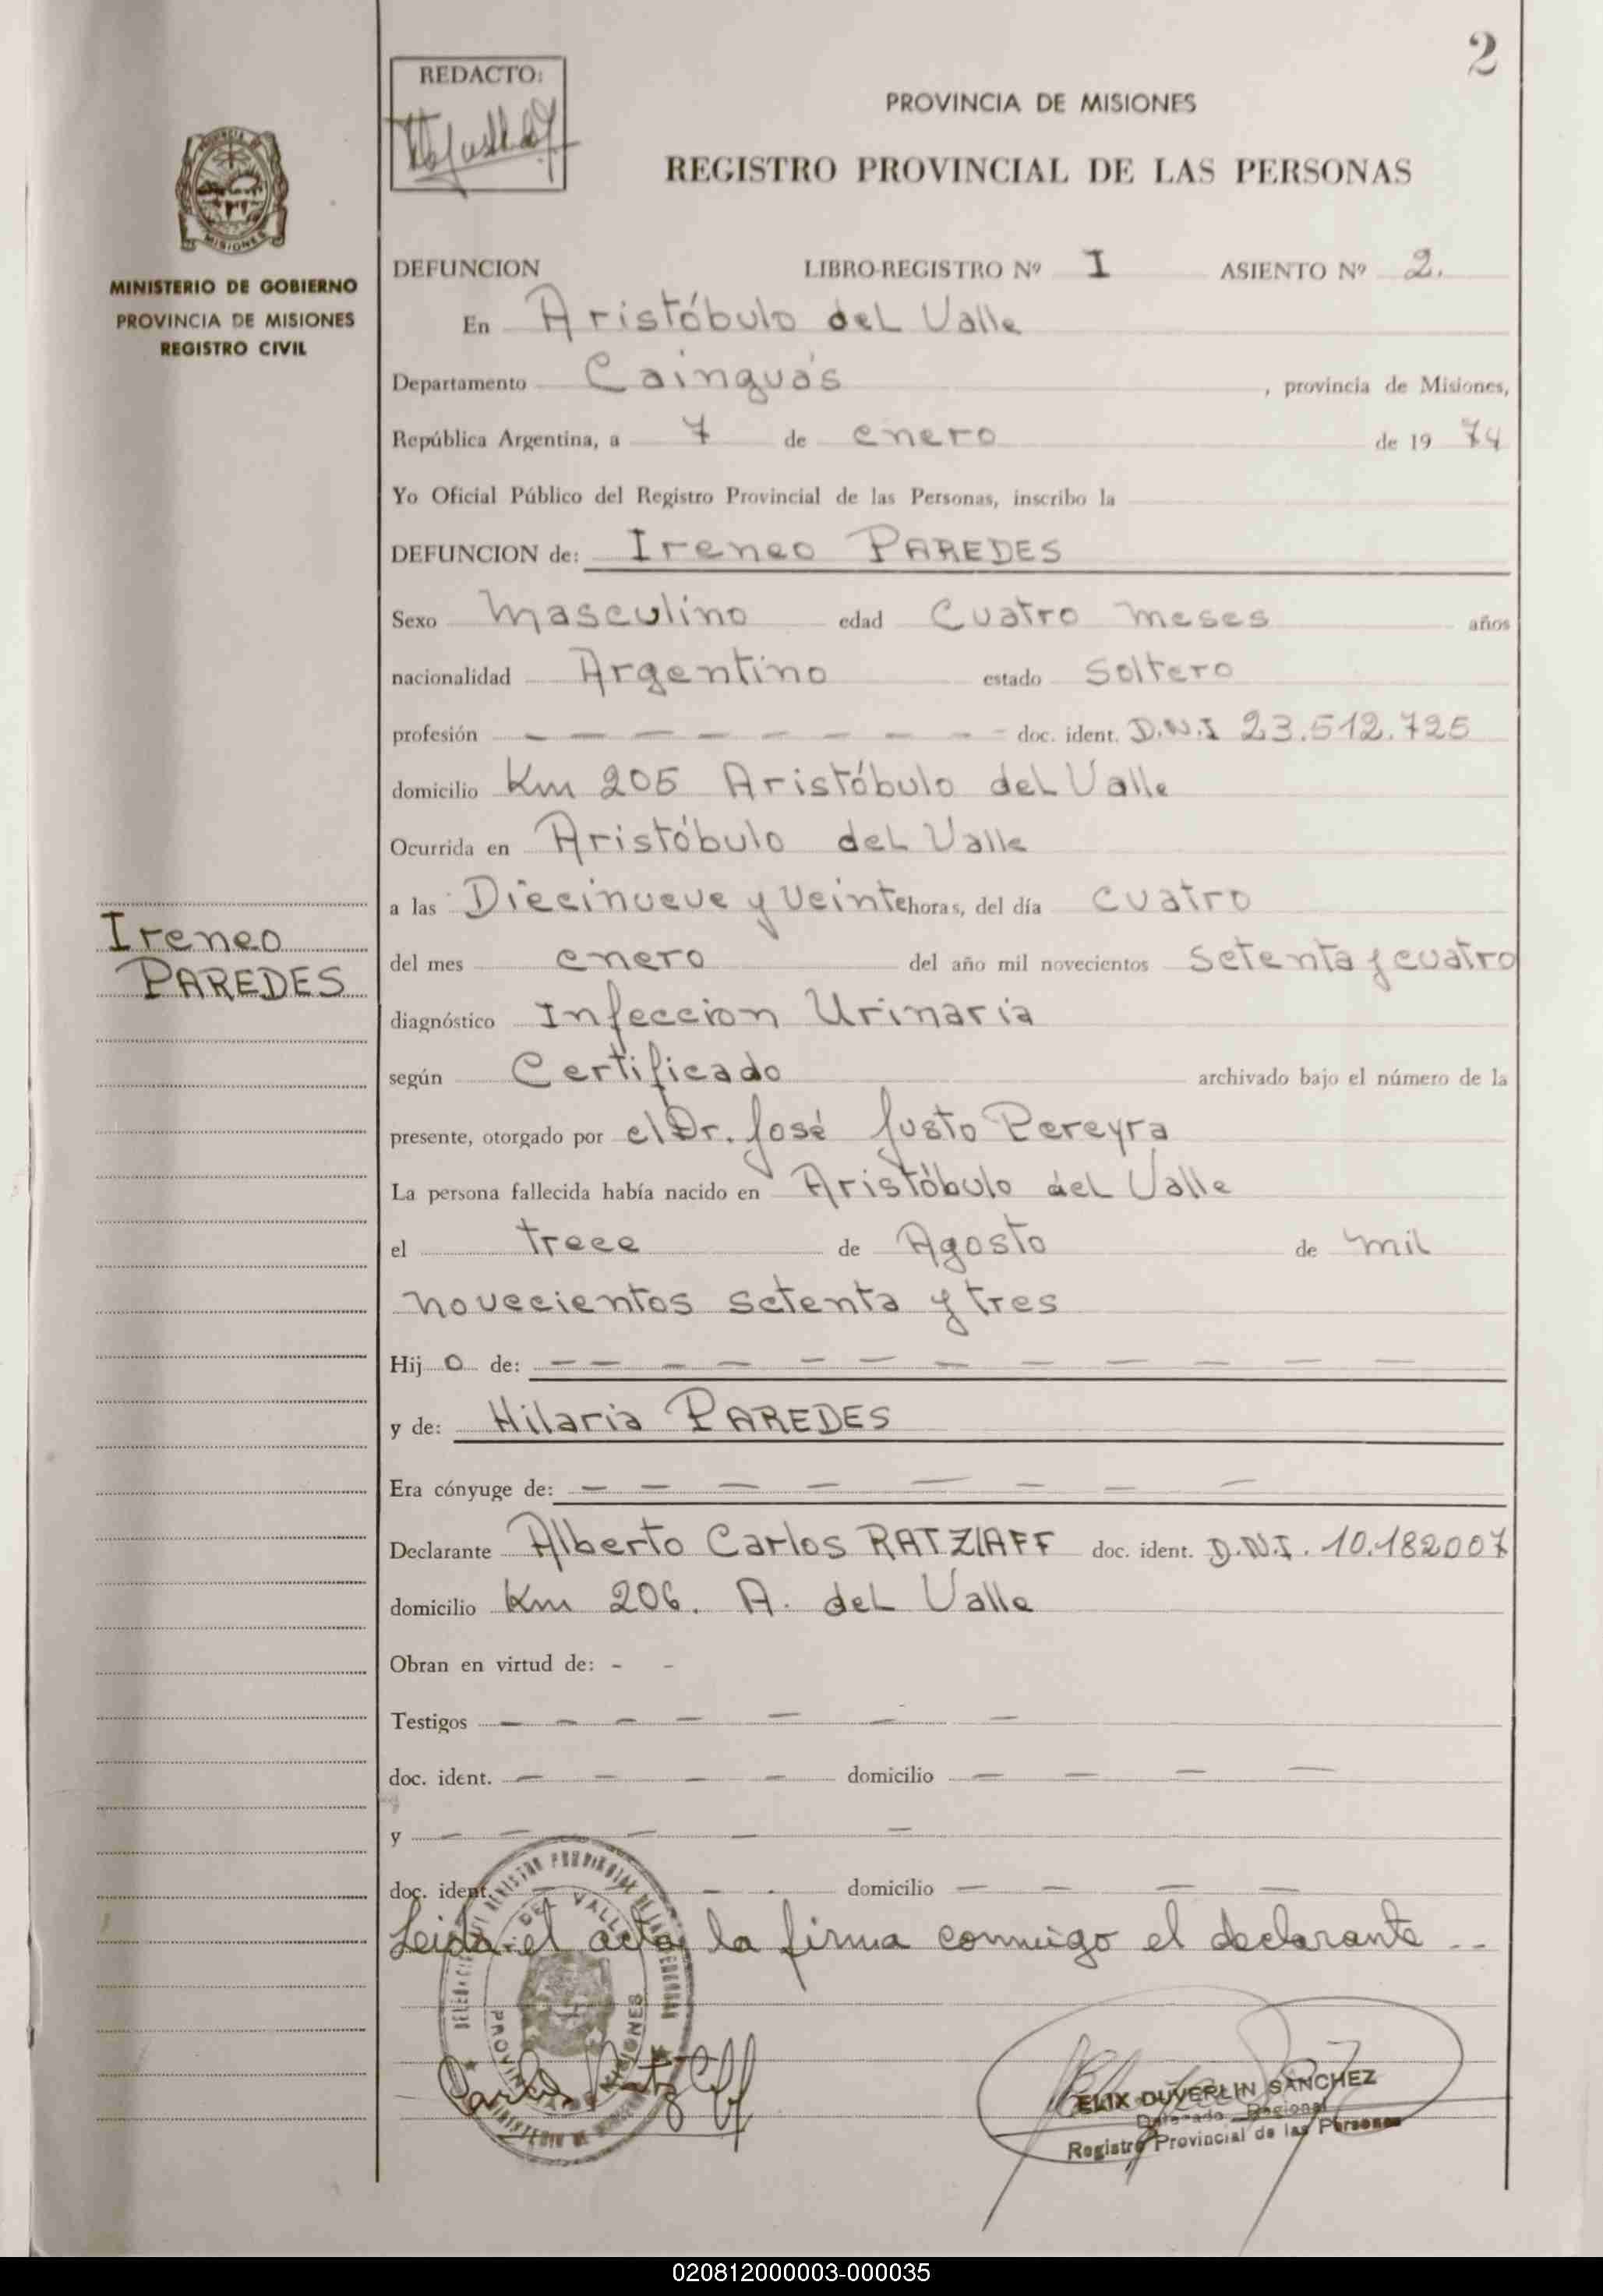 2
REDACTO:
PROVINCIA DE MISIONES
REGISTRO PROVINCIAL DE LAS PERSONAS
PROVINCIA DE
MISIONES
MINISTERIO DE GOBIERNO
PROVINCIA DE MISIONES
REGISTRO CIVIL
DEFUNCION LIBRO-REGISTRO Nº I ASIENTO Nº 2.
En Aristóbulo del Valle
Departamento Cainguás, provincia de Misiones,
República Argentina, a 7 de enero de 1974
Yo Oficial Público del Registro Provincial de las Personas, inscribo la
DEFUNCION de: Ireneo PAREDES
Sexo Masculino edad Cuatro meses años
nacionalidad Argentino estado Soltero
profesión — — — — — — — — doc. ident. D.N.I 23.512.725
domicilio Km 205 Aristóbulo del Valle
Ocurrida en Aristóbulo del Valle
a las Diecinueve y Veinte horas, del día cuatro
Ireneo
PAREDES
del mes enero del año mil novecientos setenta y cuatro
diagnóstico Infeccion Urinaria
según Certificado archivado bajo el número de la
presente, otorgado por el Dr. José Justo Pereyra
La persona fallecida había nacido en Aristóbulo del Valle
el trece de Agosto de mil
novecientos setenta y tres
Hijo de: — — — — — — — — — — — —
y de: Hilaria PAREDES
Era cónyuge de: — — — — — — — —
Declarante Alberto Carlos RATZlAFF doc. ident. D.N.I. 10.182007
domicilio Km 206. A. del Valle
Obran en virtud de: - -
Testigos — — — — — — —
doc. ident. — — — — domicilio — — — —
y — — — — —
doc. ident. — — — domicilio — — — —
Leida el acta, la firma conmigo el declarante --
DEL VALLE
PROVINCIA MISIONES
Carlos Ratzlaff
ELIX DUVERLIN SANCHEZ
Delegado Regional
Registro Provincial de las Personas
020812000003-000035